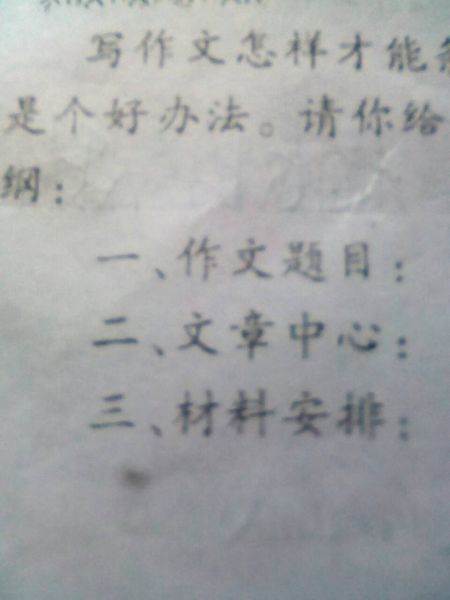 写作文怎样才能
是个好办法。请你给
纲：
一、作文题目：
二、文章中心：
三、材料安排：